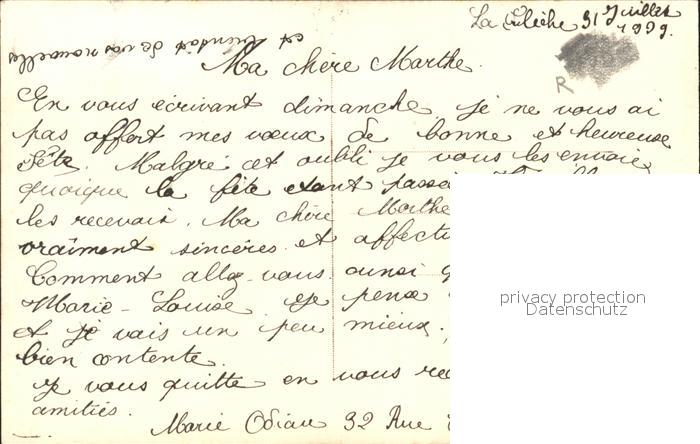 La Flèche 31 Juillet
1939.
et bientôt de vos nouvelles
Ma chère Marthe.
R
En vous écrivant dimanche je ne vous ai
pas offert mes vœux de bonne et heureuse
Fête. Malgré cet oubli je vous les envoie
quoique la fête étant passé
les recevoir. Ma chère Marthe
vraiment sincères et affect
Comment allez-vous ainsi q
Marie-Louise je pense
et je vais un peu mieux.
bien contente.
Je vous quitte en vous re
amitiés.
Marie Odiau 32 Rue
privacy protection
Datenschutz